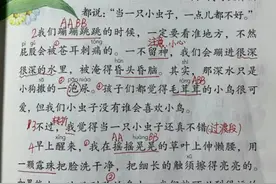 都说：“当一只小虫子，一点儿都不好。”
AABB
2我们蹦蹦跳跳的时候，一定要看准地方，不然
屁股会被苍耳刺痛的。一不留神，我们会蹦进很深
很深的水里，被淹得昏头昏脑。其实，那深水只是
小狗撒的一泡尿。孩子们都觉得毛茸茸的小鸟很可
爱，但我们小虫子没有谁会喜欢小鸟。
3不过，我觉得当一只小虫子还真不错（过渡段）
4早上醒来，我在摇摇晃晃的草叶上伸懒腰，用
一颗露珠把脸洗干净，把细长的触须擦得亮亮的。